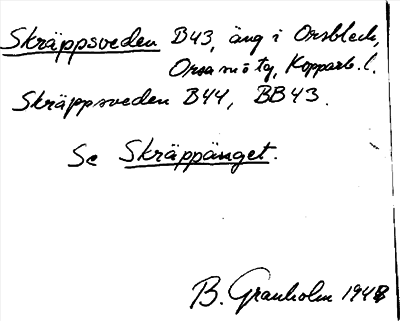 Skräppsveden B43, äng i Orsbleck,
Orsa sn ö tg, Kopparb. l.
Skräppsveden B44, BB43.
Se Skräppänget.
B. Granholm 1948